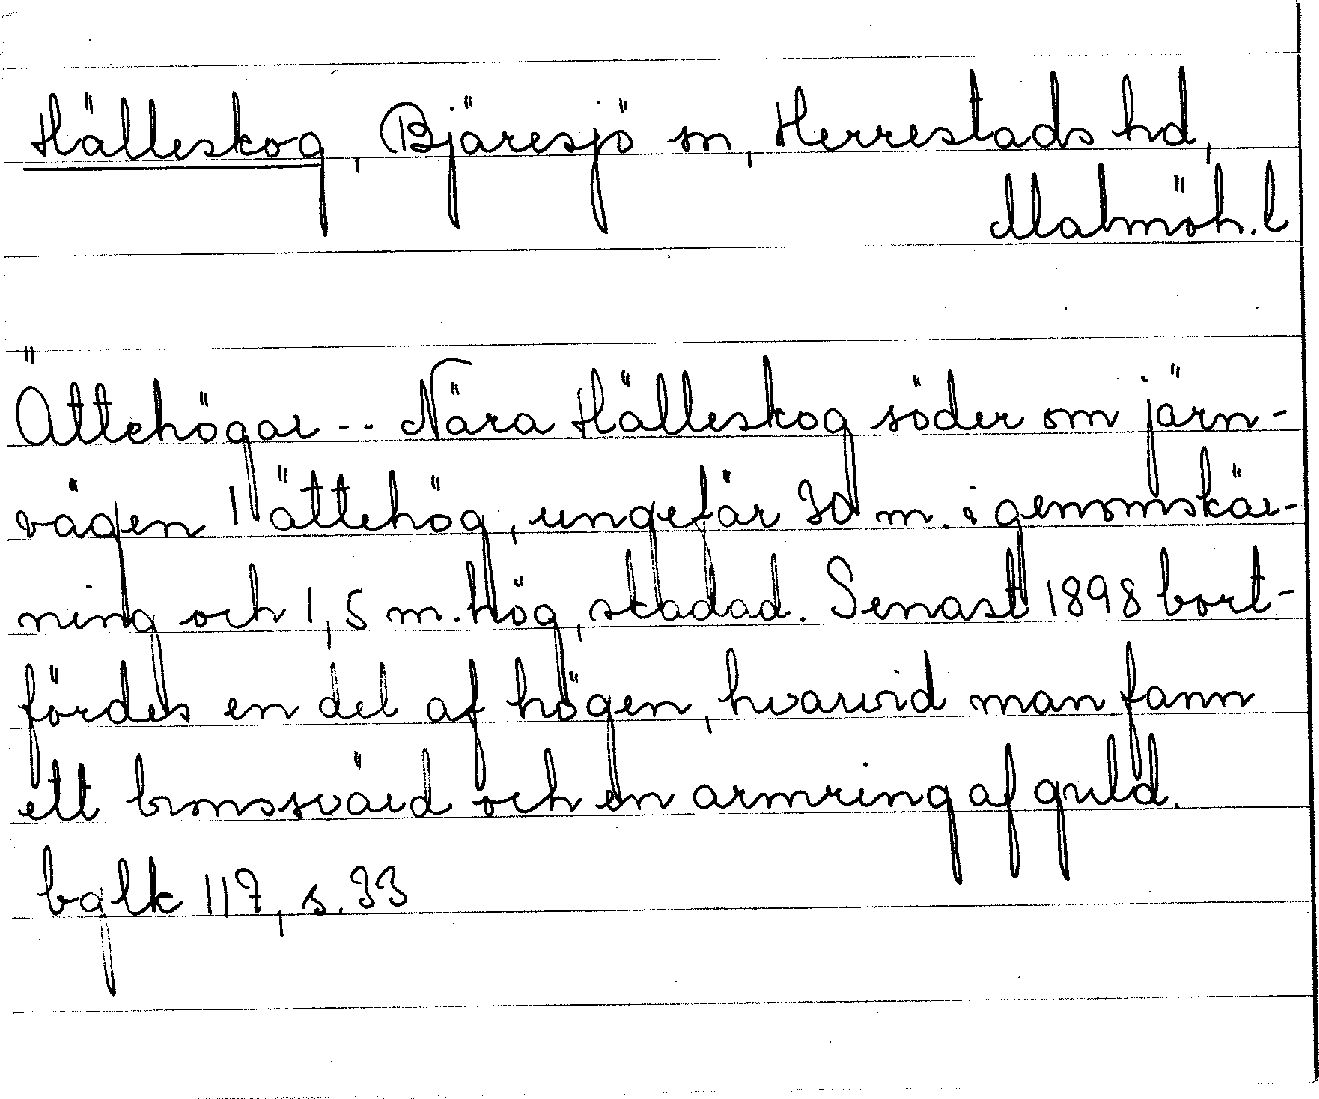 Hälleskog, Bjäresjö sn, Herrestads hd,
Malmöh. l
Ättehögar -- Nära Hälleskog söder om järn-
vägen 1 ättehög, ungefär 30 m. i genomskär-
ning och 1,5 m. hög, skadad. Senast 1898 bort-
fördes en del af högen, hvarvid man fann
ett bronssvärd och en armring af guld.
bglk 117, s. 33